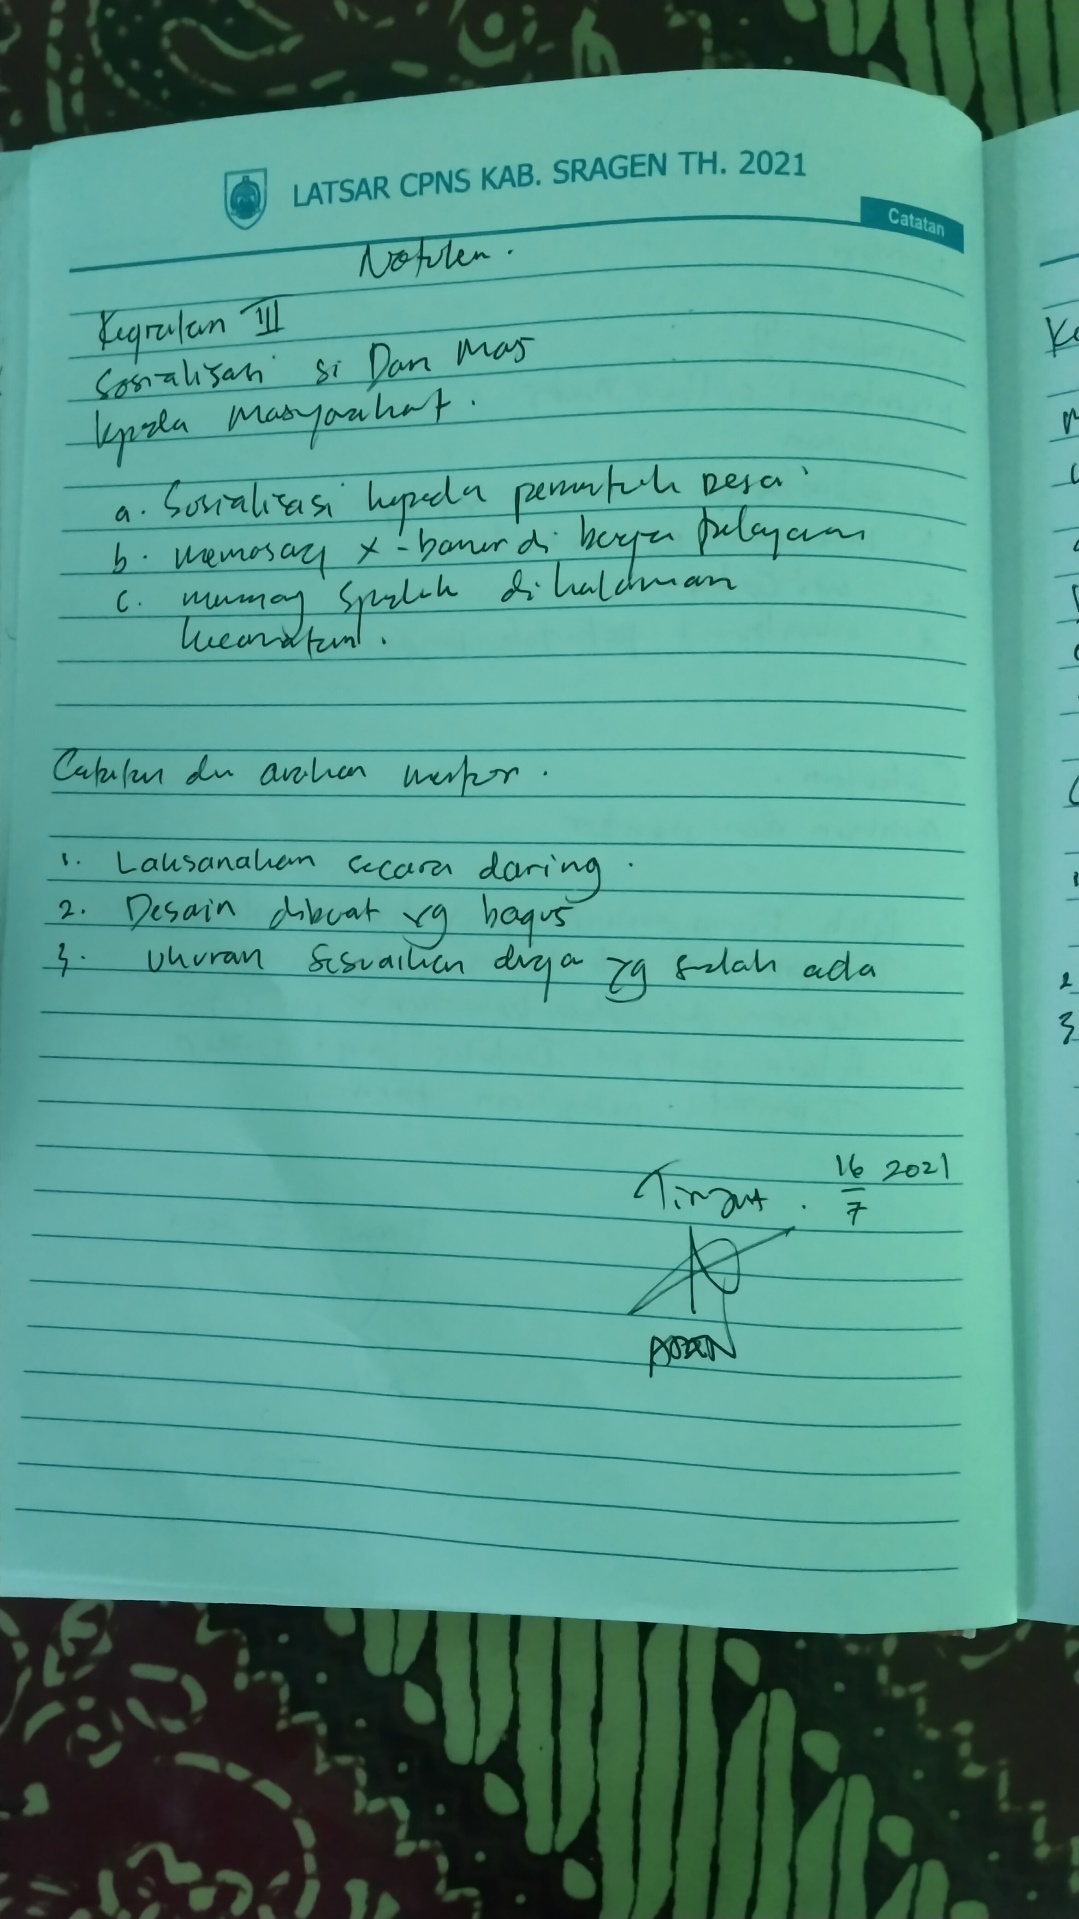 LATSAR CPNS KAB. SRAGEN TH. 2021
Catatan
Notulen.
Kegiatan III
Sosialisasi si Dan Mas
kpada Masyarakat.
a. Sosialisasi kepada pemerintah Desa
b. memasang X-baner di pelayanan
c. di halaman
kecamatan.
Catatan dn arahan mentor.
1. Laksanakan secara daring.
2. Desain dibuat yg bagus
3. Ukuran sesuaikan yg sudah ada
16 2021
7